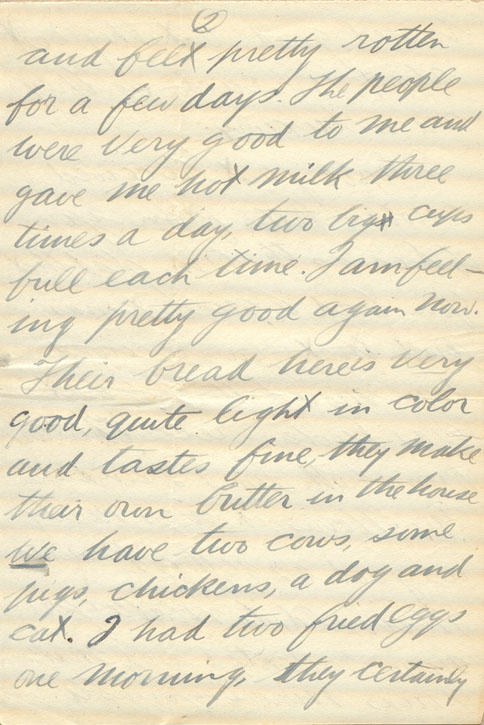 (2)
and felt pretty rotten
for a few days. The people
were very good to me and
gave me hot milk three
times a day, two big cups
full each time. I am feel-
ing pretty good again now.
Their bread here is very
good, quite light in color
and tastes fine, they make
their own butter in the house
We have two cows, some
pigs, chickens, a dog and
cat. I had two fried eggs
one morning, they certainly